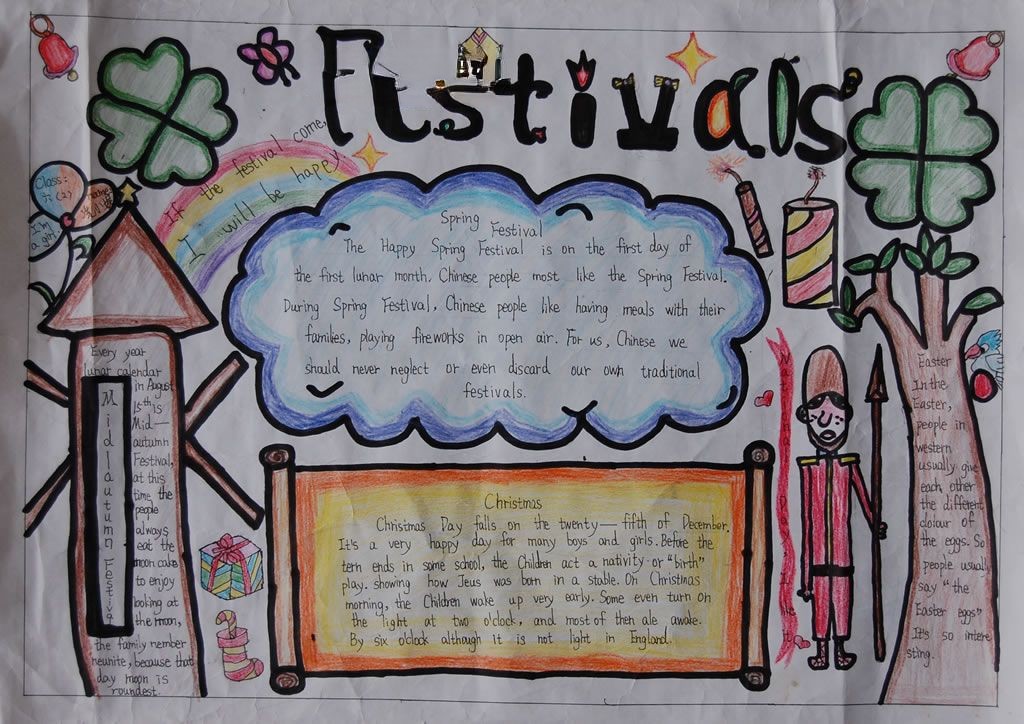 Festivals
If the festival come,
I will be happy
Class:
六(2)
Name:
I'm
a girl
Spring
Festival
The Happy Spring Festival is on the first day of
the first lunar month. Chinese people most like the Spring Festival.
During Spring Festival, Chinese people like having meals with their
families, playing fireworks in open air. For us, Chinese we
should never neglect or even discard our own traditional
festivals.
Every year
lunar calendar
in August
15th is
Mid—
autumn
Festival,
at this
time the
people
always
eat the
moon cake
to enjoy
looking at
the moon,
the family nember
reunite, because that
day moon is
roundest.
Midlautumn Festival
Christmas
Christmas Day falls on the twenty—fifth of December.
It's a very happy day for many boys and girls. Before the
tern ends in some school, the Children act a nativity or "birth"
play. showing how Jeus was born in a stable. On Christmas
morning, the Children wake up very early. Some even turn on
the light at two o'clock, and most of then ale awake.
By six o'clock although it is not light in England.
Easter
In the
Easter,
people in
western
usually give
each other
the different
clolour of
the eggs. So
people usually
say "the
Easter eggs"
It's so intere
sting.